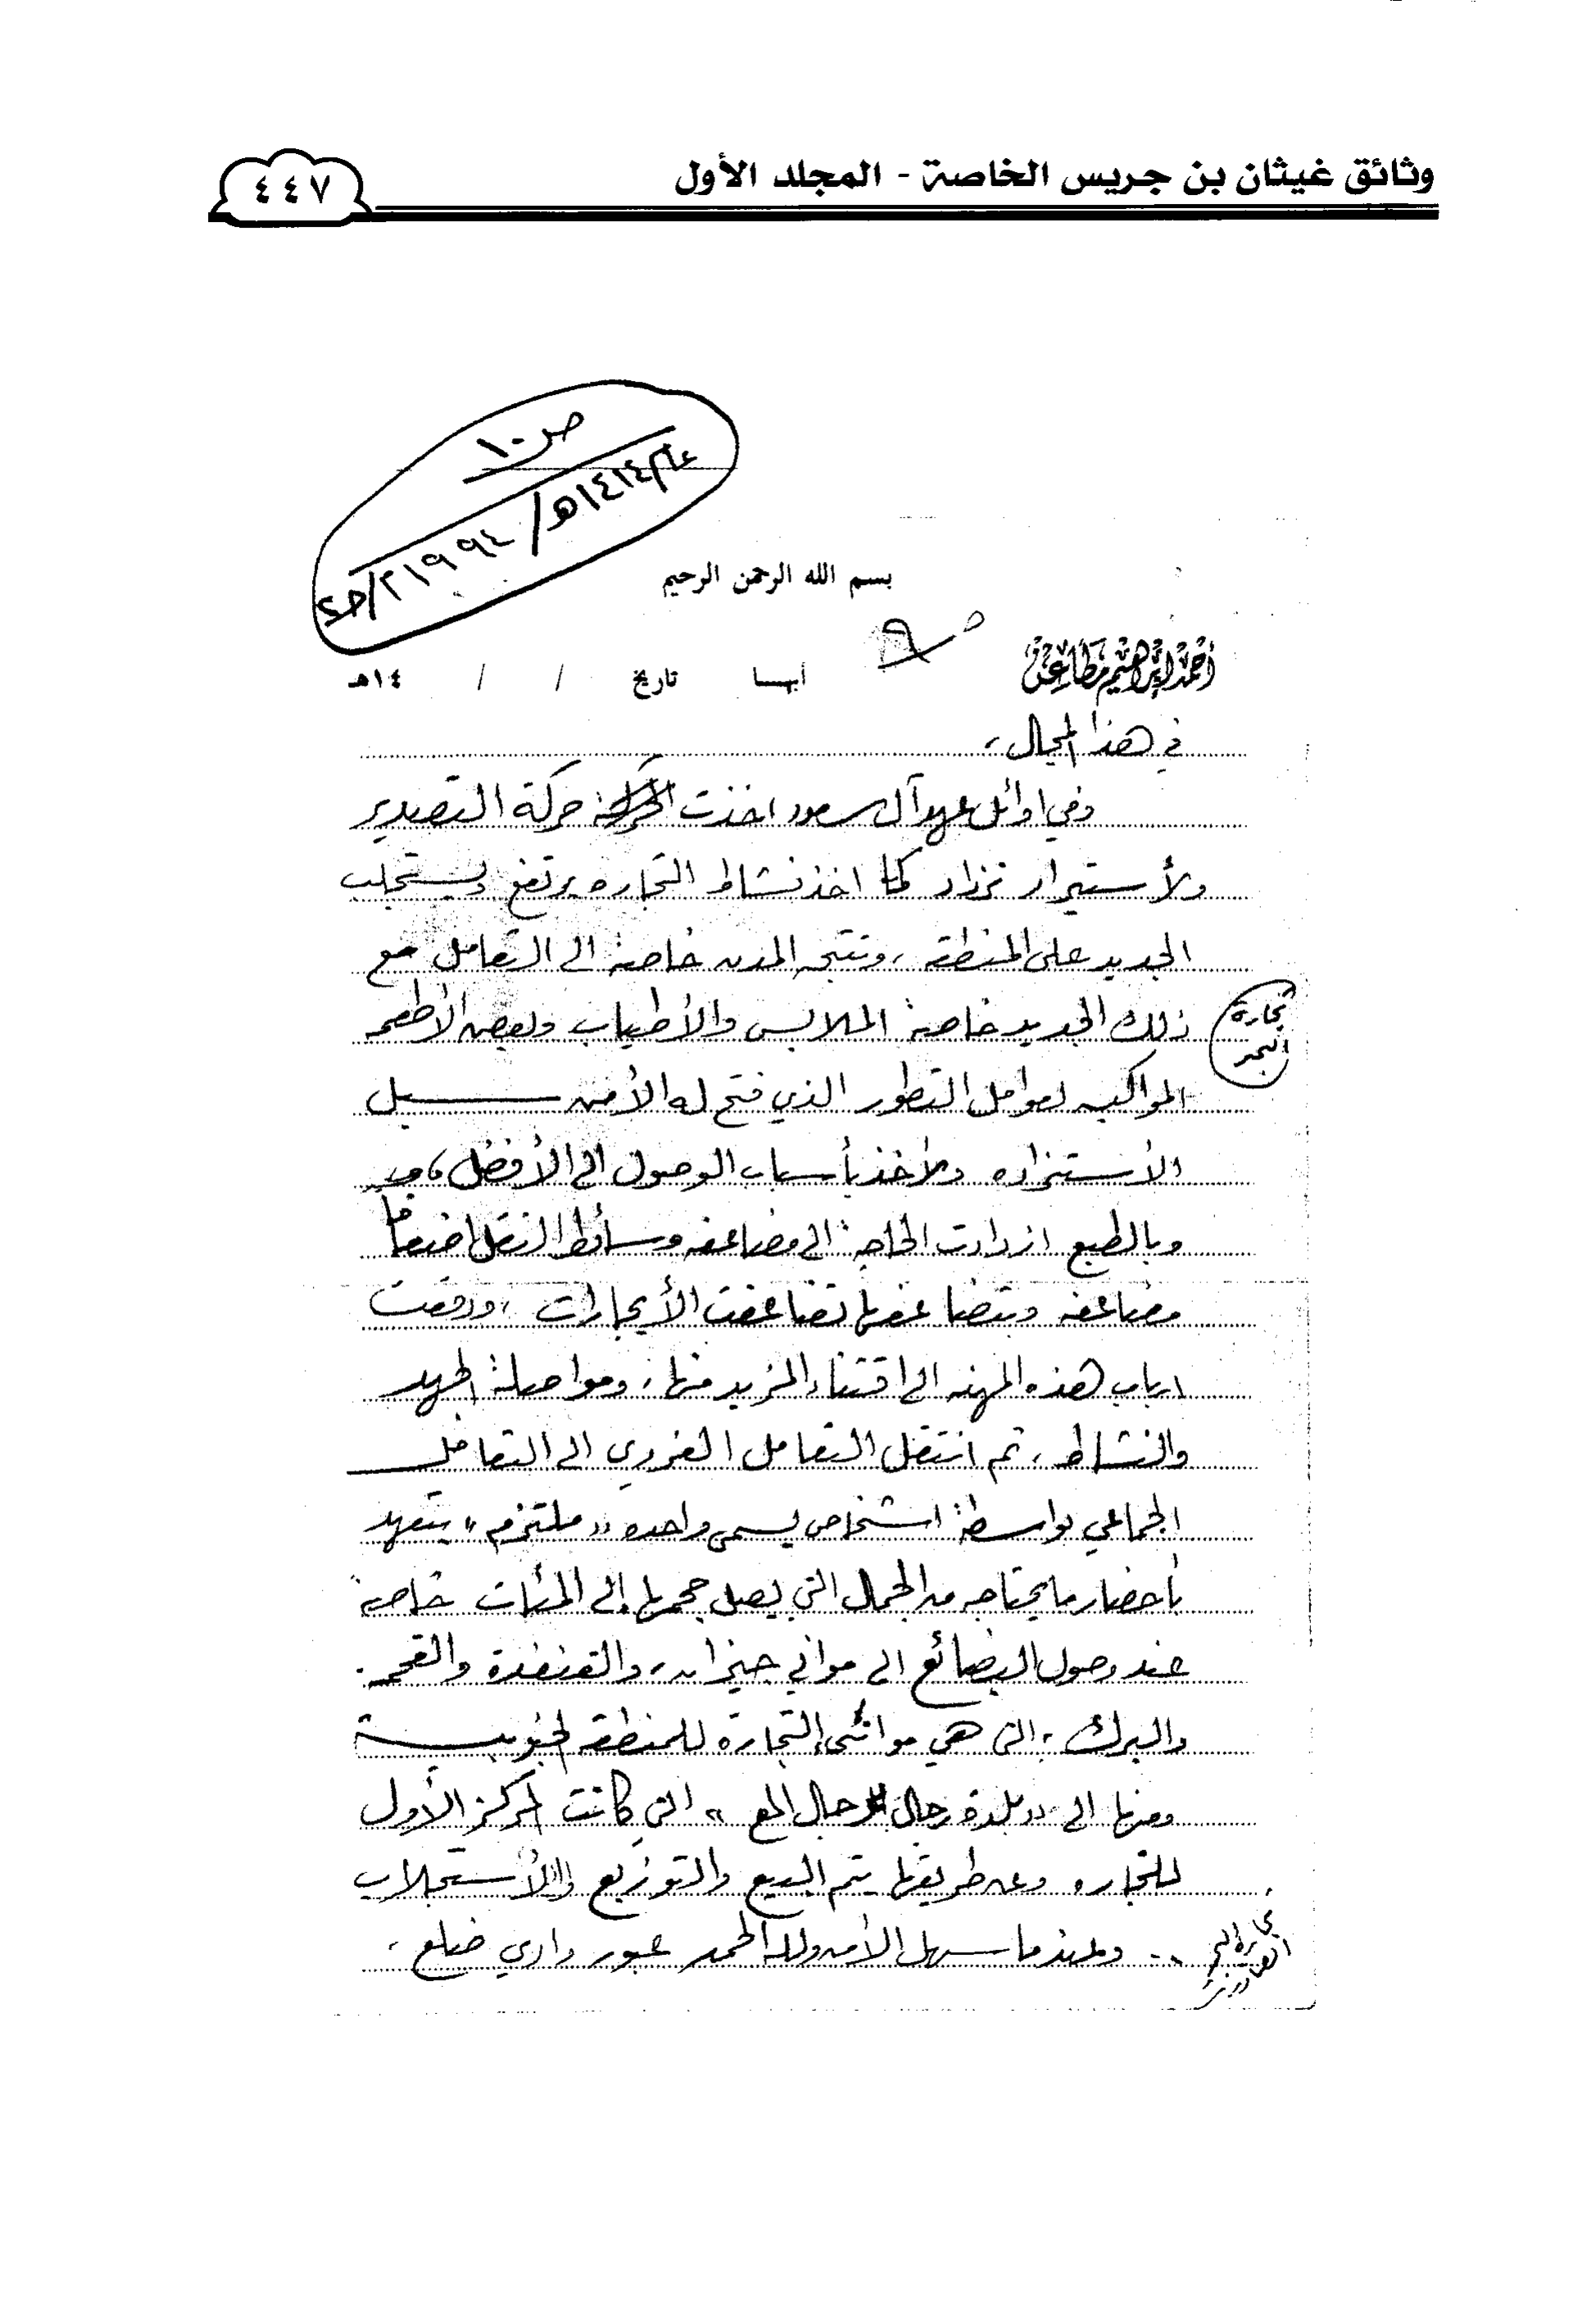 وثائق غيثان بن جريس الخاصة - المجلد الأول
٤٤٧
ص ١٠
١٤١٤هـ / ١٩٩٤م
بسم الله الرحمن الرحيم
أحمد إبراهيم مطاعن
أبهــا تاريخ / / ١٤هـ
في هذا المجال،
وفي اوائل عهد آل سعود اخذت حركة التصدير
ولأستيراد تزداد كما اخذ نشاط التجاره يرتفع ويستجلب
الجديد على المنطقه، وتتجه المدن خاصة الى التعامل مع
ذلك الجديد خاصة الملابس والأطياب وبعض الأطعمه
تجارة
المواكبه لعوامل التطور الذي فتح له الأمن سبل
الأستزاده ولأخذ بأسباب الوصول الى الأفضل
وبالطبع ازدادت الحاجة الى مضاعفه وسائط النقل اضعافا
مضاعفه وبتضاعفها تضاعفت الأيجارات، ودفعت
ارباب هذه المهنه الى اقتناء المزيد منها، ومواصلة الجهد
والنشاط، ثم انتقل التعامل الفردي الى التعامل
الجماعي بواسطة اشخاص يسمى واحده "ملتزم" يتعهد
بأحضار ما يحتاجه من الجمال التي يصل حجمها إلى المئات خاصة
عند وصول البضائع الى مواني جيزان، والقنفذة والقحمه.
والبرك، التي هي موانئ التجارة للمنطقه الجنوبية
ومنها الى "بلدة رجال رجال المع" التي كانت المركز الأول
للتجاره وعن طريقها يتم البيع والتوزيع والأستجلاب
.. وعندما سهل الأمن ولله الحمد عبور وادي ضلع،